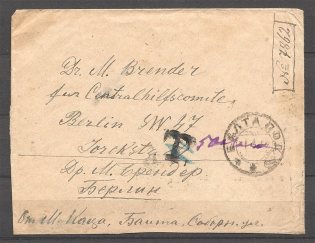 № 7862
Dr. M. Brender
fur Centralhilfscomite,
Berlin SW 47
Yorckstr
Др. М. Брендер
Берлин
БАЛТА ПОД
От М. Каца, Балта, Соборн. ул.